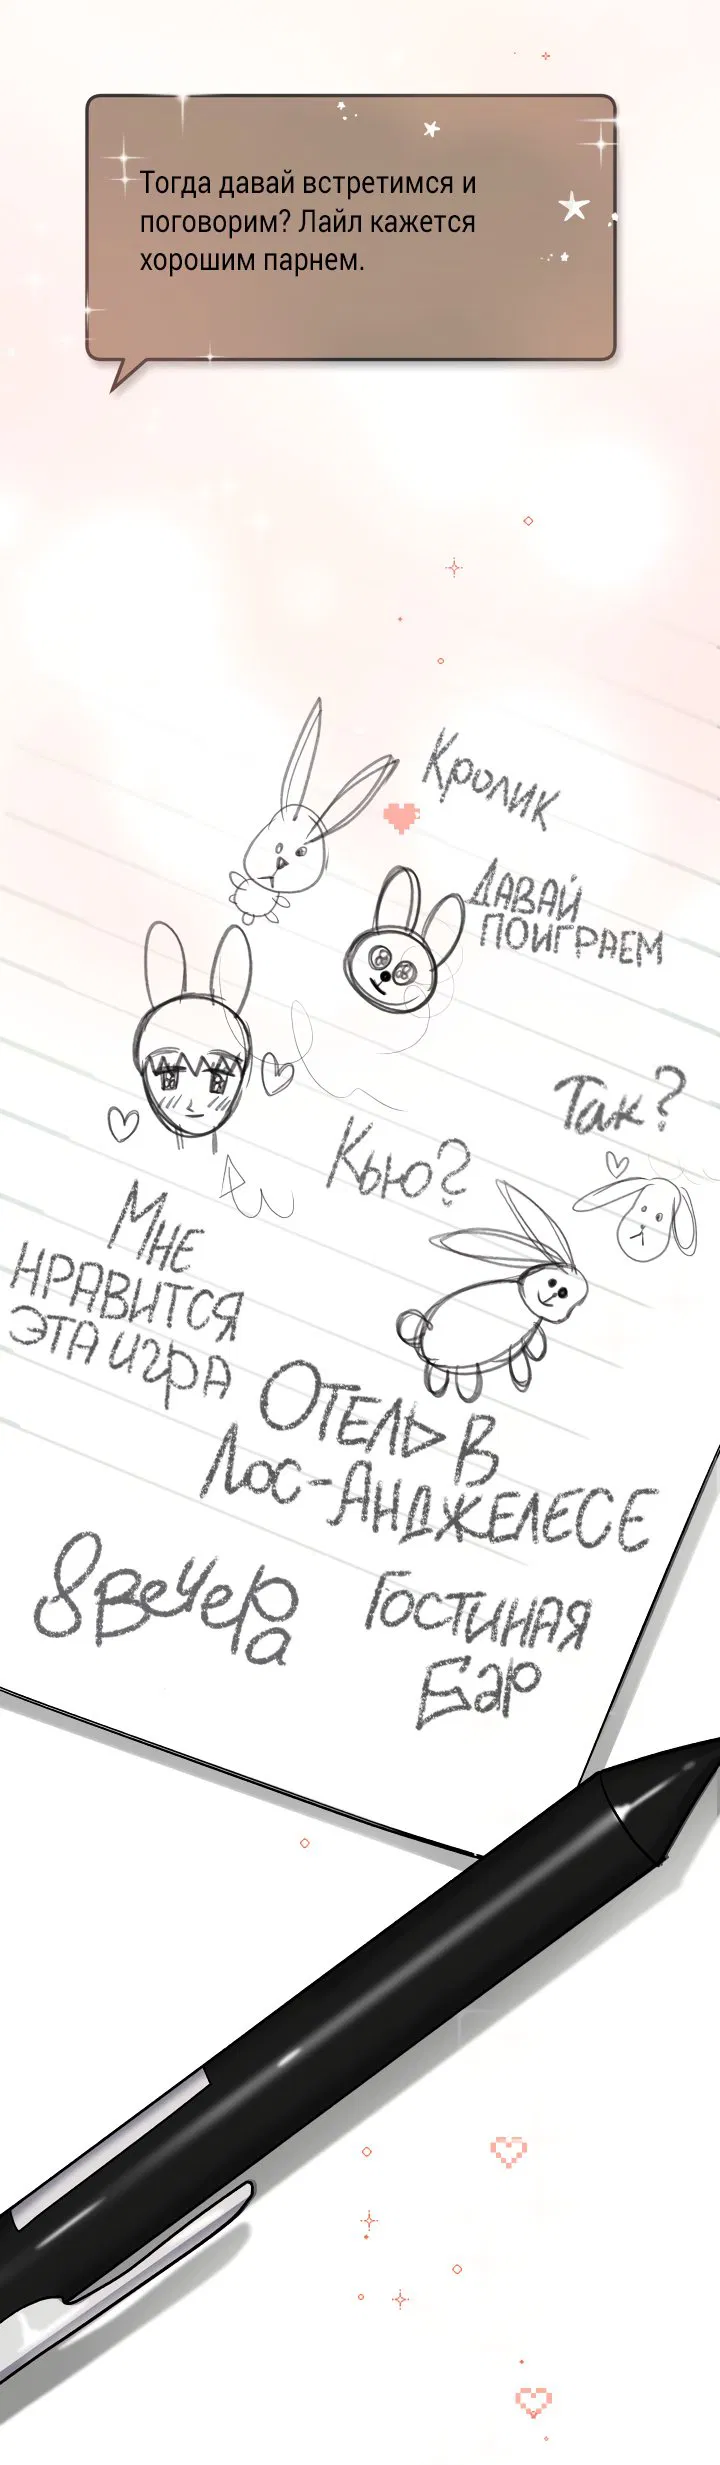 Тогда давай встретимся и
поговорим? Лайл кажется
хорошим парнем.
Кролик
ДАВАЙ
ПОИГРАЕМ
Так?
Кью?
Мне
НРАВИТСЯ
ЭТА ИГРА
ОТЕЛЬ В
ЛОС-АНДЖЕЛЕСЕ
8 вечера
Гостиная
Бар